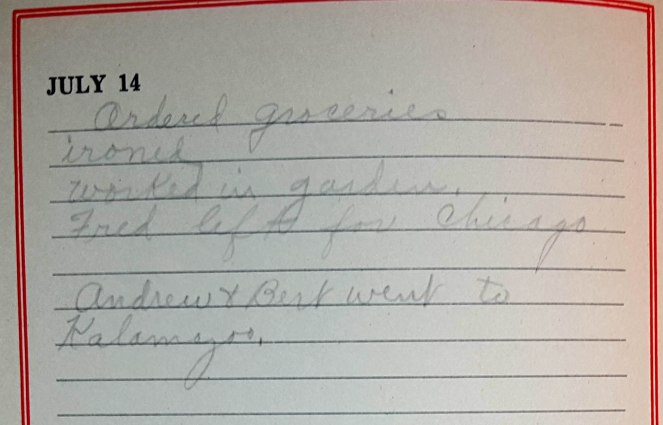 JULY 14
Ordered groceries
ironed
worked in garden.
Fred left for Chicago
Andrew & Bert went to
Kalamazoo.